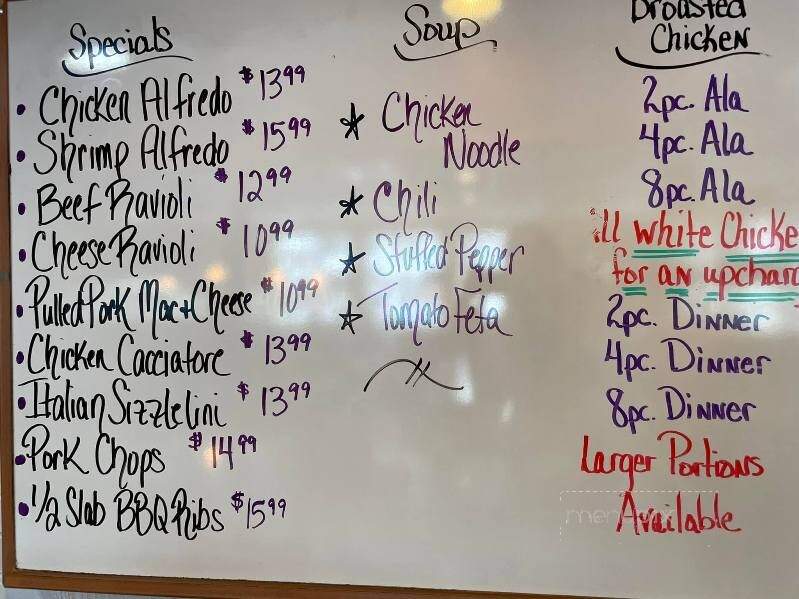 Specials
• Chicken Alfredo $13.99
• Shrimp Alfredo $15.99
• Beef Ravioli $12.99
• Cheese Ravioli $10.99
• Pulled Pork Mac + Cheese $10.99
• Chicken Cacciatore $13.99
• Italian Sizzlelini $13.99
• Pork Chops $14.99
• 1/2 Slab BBQ Ribs $15.99
Soup
Chicken
Noodle
Chili
Stuffed Pepper
Tomato Feta
Broasted
Chicken
2pc. Ala
4pc. Ala
8pc. Ala
ll white Chicke
for an upcharg
2pc. Dinner
4pc. Dinner
8pc. Dinner
Larger Portions
Available